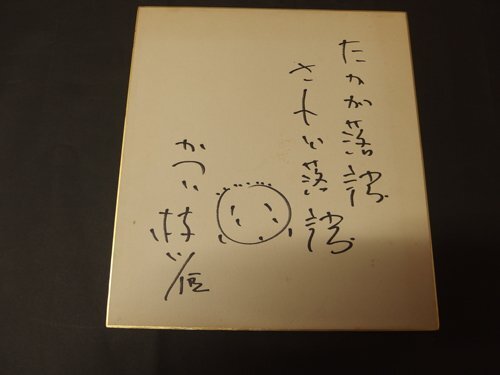 たかが落語
されど落語
かつら 枝雀